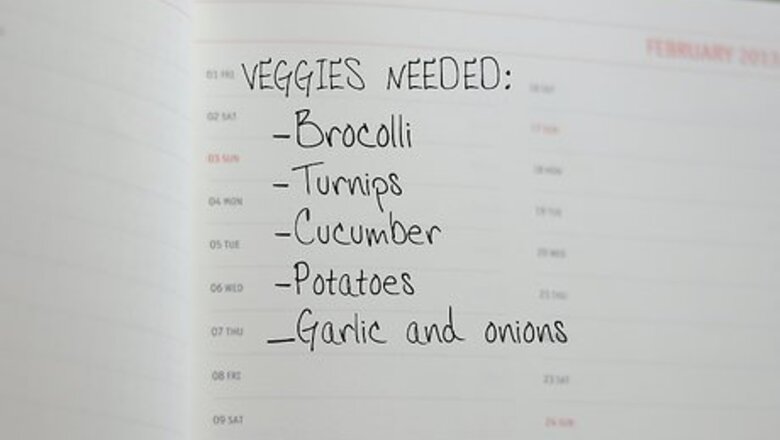 FEBRUARY 2013
01 FRI VEGGIES NEEDED: 16 SAT
02 SAT -Brocolli 17 SUN
03 SUN -Turnips 18 MON
04 MON -Cucumber 19 TUE
05 TUE 20 WED
06 WED -Potatoes 21 THU
07 THU _Garlic and onions
08 FRI 23 SAT
09 SAT 24 SUN